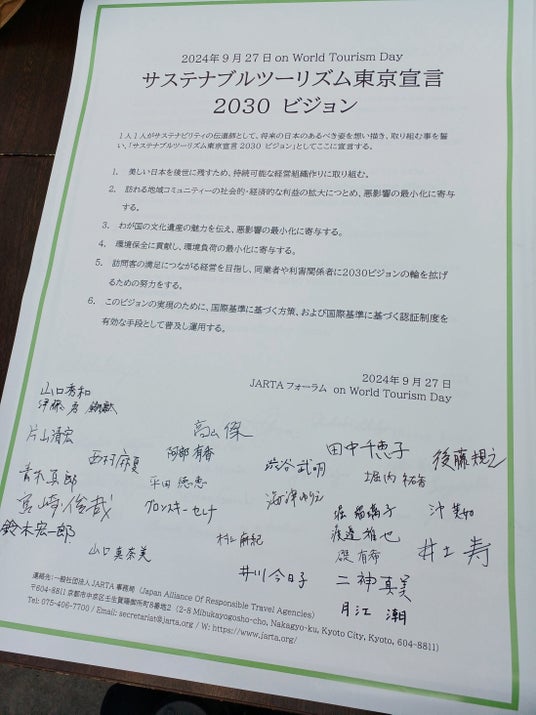 2024年9月27日 on World Tourism Day
サステナブルツーリズム東京宣言
2030 ビジョン
1人1人がサステナビリティの伝道師として、将来の日本のあるべき姿を想い描き、取り組む事を誓
い、「サステナブルツーリズム東京宣言 2030 ビジョン」としてここに宣言する。
1. 美しい日本を後世に残すため、持続可能な経営組織作りに取り組む。
2. 訪れる地域コミュニティーの社会的・経済的な利益の拡大につとめ、悪影響の最小化に寄与
する。
3. わが国の文化遺産の魅力を伝え、悪影響の最小化に寄与する。
4. 環境保全に貢献し、環境負荷の最小化に寄与する。
5. 訪問客の満足につながる経営を目指し、同業者や利害関係者に2030ビジョンの輪を拡げ
るための努力をする。
6. このビジョンの実現のために、国際基準に基づく方策、および国際基準に基づく認証制度を
有効な手段として普及し運用する。
2024年9月27日
JARTA フォーラム on World Tourism Day
山口秀和
片山清宏
西村麻夏
阿部有香
高山傑
渋谷武明
田中千恵子
後藤規之
堀内祐香
青木真郎
平田徳恵
宮崎俊哉
グロンスキーセレナ
海津ゆりえ
堀瑠璃子
渡邉雄也
鈴木宏一郎
山口真奈美
村上麻紀
有希
井上寿
井川今日子
二神真美
月江潮
連絡先:一般社団法人 JARTA 事務局 (Japan Alliance Of Responsible Travel Agencies)
〒604-8811 京都市中京区壬生賀陽御所町8番地2 (2-8 Mibukayogosho-cho, Nakagyo-ku, Kyoto City, Kyoto, 604-8811)
Tel: 075-406-7700 / Email: secretariat@jarta.org / W: https://www.jarta.org/